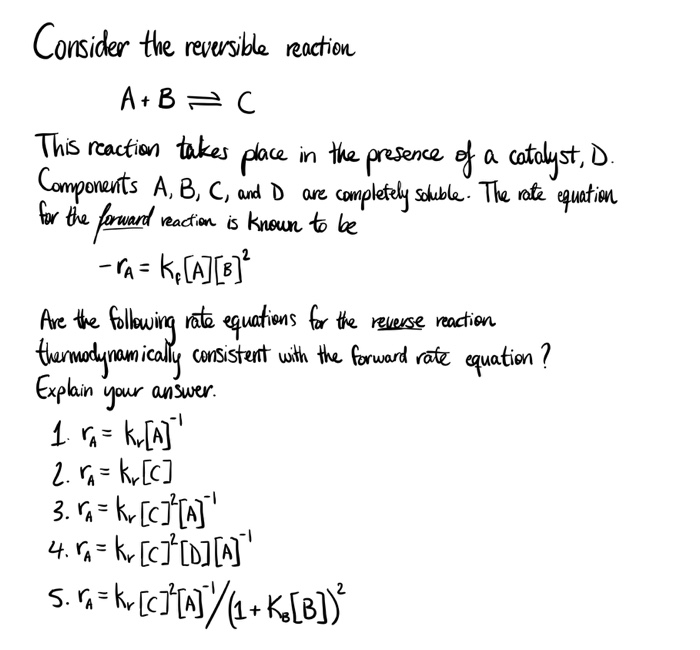 Consider the reversible reaction
A + B ⇌ C
This reaction takes place in the presence of a catalyst, D.
Components A, B, C, and D are completely soluble. The rate equation
for the forward reaction is known to be
-r_A = k_f[A][B]²
Are the following rate equations for the reverse reaction
thermodynamically consistent with the forward rate equation?
Explain your answer.
1. r_A = k_r[A]⁻¹
2. r_A = k_r[C]
3. r_A = k_r[C]²[A]⁻¹
4. r_A = k_r[C]²[D][A]⁻¹
5. r_A = k_r[C]²[A]⁻¹/(1 + K_B[B])²